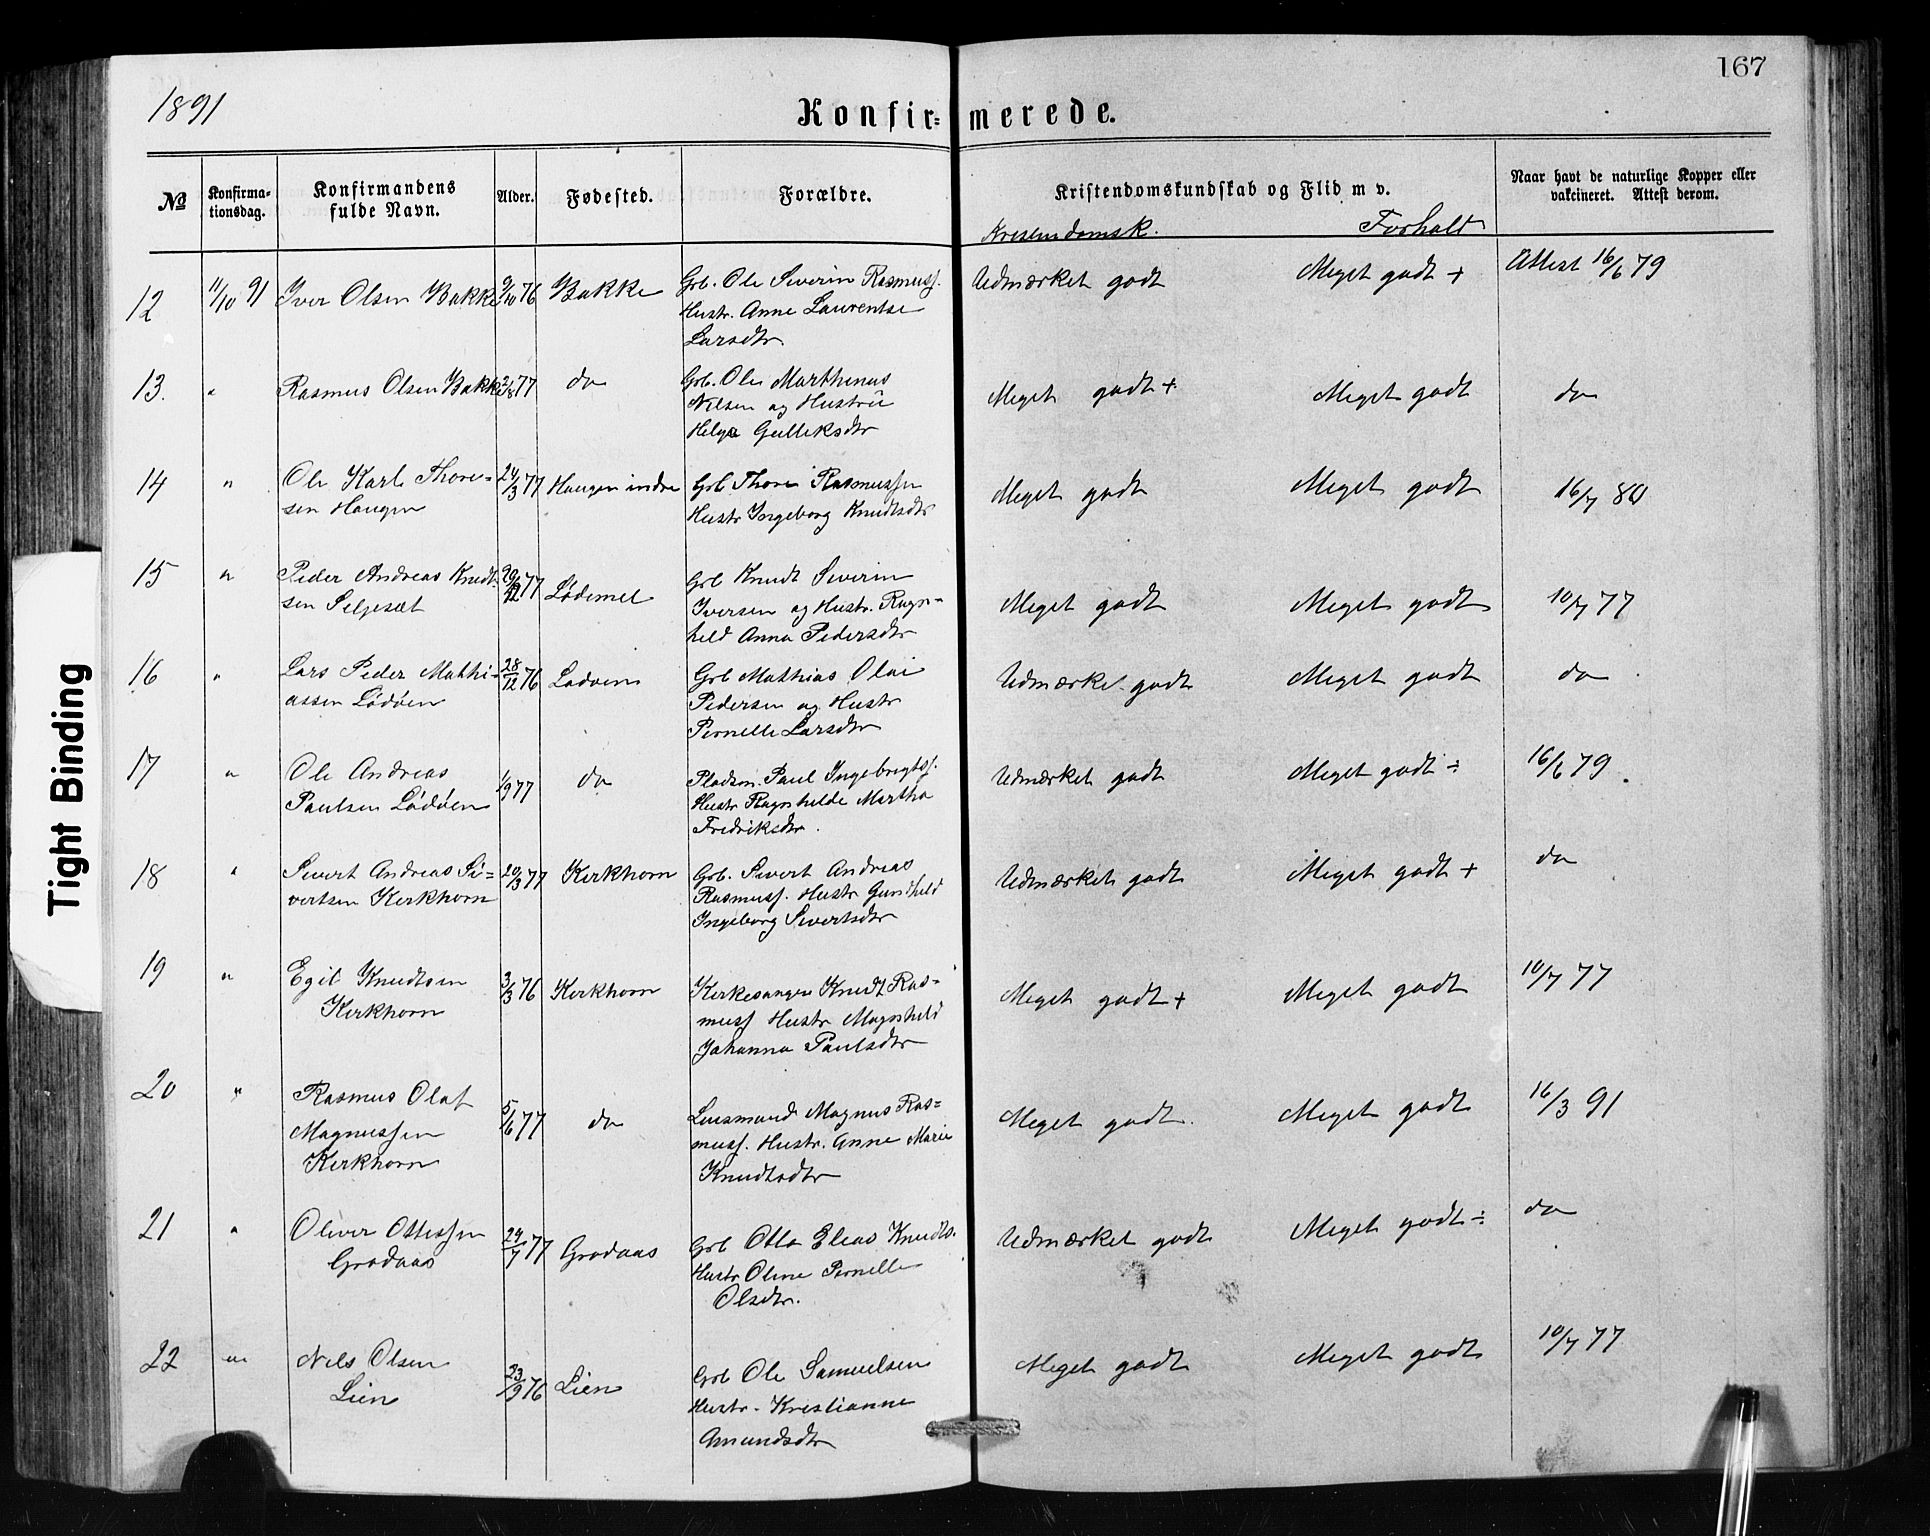 167
1891
Konfir= merede.
№
Konfirma-
tionsdag.
Konfirmandens
fulde Navn.
Alder.
Fødested.
Forældre.
Kristendomskundskab og Flid m v.
Naar havt de naturlige Kopper eller
vakcineret. Attest derom.
Forhold
12 11/10 91 Iver Olsen Bakke 9/10 76 Bakke Grb. Ole Severin Rasmuss. Udmærket godt Meget godt + Attest 16/6 79
Hustr. Anne Laurentse
Larsdtr.
13. " Rasmus Olsen Bakke 2/8 77 do Grb. Ole Marthinus Meget godt + Meget godt do
Nilsen og Hustru
Helga Gulliksdtr
14 " Ole Karl Thore- 24/3 77 Haugen indre Grb Thore Rasmussen Meget godt Meget godt 16/7 80
sen Haugen Hustr Ingeborg Knudtsdtr
15 " Peder Andreas Knudt- 77 Lødemel Grb Knudt Severin Meget godt Meget godt 10/7 77
sen Seljesæt Iversen og Hustr. Ragn-
hild Anna Pedersdtr
16 " Lars Peder Mathi- 28/12 76 Lødøen Grb Mathias Olai Udmærket godt Meget godt do
assen Lødøen Pedersen og Hustr
Pernelle Larsdtr
17 " Ole Andreas 1/9 77 do Pladsm. Paul Ingebrigts. Udmærket godt Meget godt ÷ 16/6 79
Paulsen Lødøen Hustr Ragnhilde Martha
Fredriksdtr.
18 " Sivert Andreas Si= 20/3 77 Kirkhorn Grb. Sivert Andreas Udmærket godt Meget godt + do
vertsen Kirkhorn Rasmuss. Hustr Gunhild
Ingeborg Sivertsdtr
19 " Egil Knudtsen 3/3 76 Kirkhorn Kirkesanger Knudt Ras= Meget godt + Meget godt 10/7 77
Kirkhorn muss Hustr Magnhild
Johanna Paulsdtr
20 " Rasmus Olaf 5/6 77 do Lensmand Magnus Ras= Meget godt. Meget godt 16/3 91
Magnussen muss. Hustr. Anne Marie
Kirkhorn Knudtsdtr
21 " Oliver Ottessen 24/7 77 Grodaas Grb Otto Elias Knudts. Udmærket godt Meget godt ÷ do
Grodaas Hustr Oline Pernelle
Olsdtr.
22 " Nils Olsen 23/9 76 Lien Grb Ole Samuelsen Meget godt Meget godt 10/7 77
Lien Hustr. Kristianne
Amundsdtr
Tight Binding